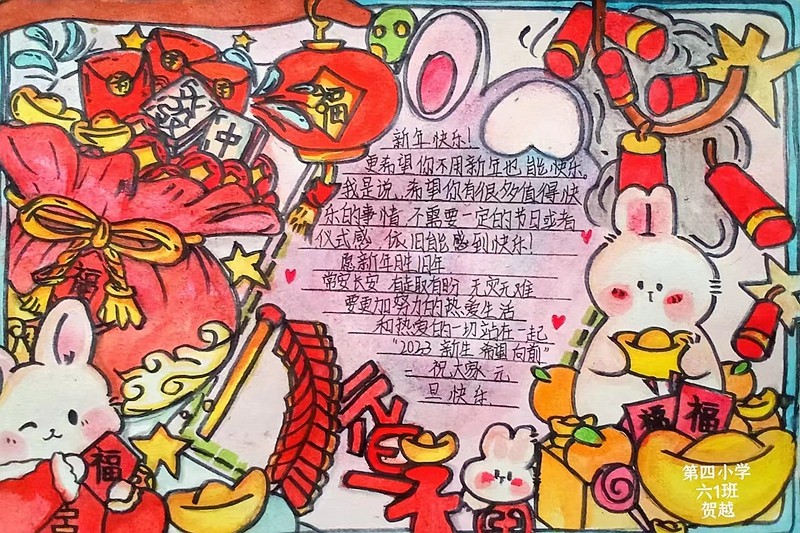 新年快乐!
更希望你不用新年也能快乐.
我是说,希望你有很多值得快
乐的事情,不需要一定的节日或者
仪式感,依旧能感到快乐!
愿新年胜旧年
常安长安 有盼 无灾无难
要更加努力的热爱生活
和热爱的一切站在一起
"2023 新生 希望 向前"
祝大家元
旦快乐
福
中
福
福
福
福
第四小学
六1班
贺越